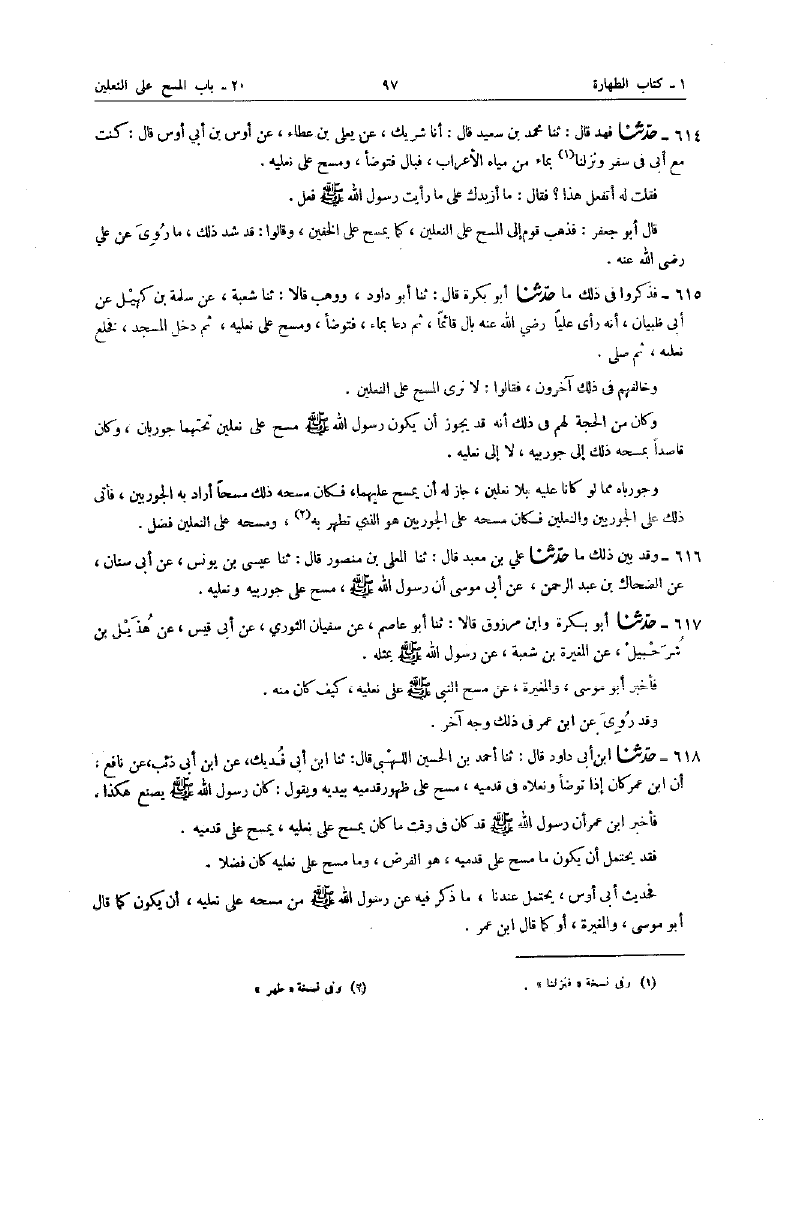 ١ - كتاب الطهارة ٩٧ ٢٠ - باب المسح على النعلين
٦١٤ - حدثنا فهد قال : ثنا محمد بن سعيد قال : أنا شريك ، عن يعلى بن عطاء ، عن أوس بن أبي أوس قال : كنت
مع أبى فى سفر ونزلنا(١) بماء من مياه الأعراب ، فبال فتوضأ ، ومسح على نعليه .
فقلت له أتفعل هذا ؟ فقال : ما أزيدك على ما رأيت رسول الله ﷺ فعل .
قال أبو جعفر : فذهب قوم إلى المسح على النعلين ، كما يمسح على الخفين ، وقالوا : قد شد ذلك ، ما رُوِىَ عن علي
رضى الله عنه .
٦١٥ - فذكروا فى ذلك ما حدثنا أبو بكرة قال : ثنا أبو داود ، ووهب قالا : ثنا شعبة ، عن سلمة بن كهيْل عن
أبى ظبيان ، أنه رأى علياً رضي الله عنه بال قائماً ، ثم دعا بماء ، فتوضأ ، ومسح على نعليه ، ثم دخل المسجد ، فخلع
نعليه ، ثم صلى .
وخالفهم فى ذلك آخرون ، فقالوا : لا نرى المسح على النعلين .
وكان من الحجة لهم فى ذلك أنه قد يجوز أن يكون رسول الله ﷺ مسح على نعلين تحتهما جوربان ، وكان
قاصداً بمسحه ذلك إلى جوربيه ، لا إلى نعليه .
وجورباه مما لو كانا عليه بلا نعلين ، جاز له أن يمسح عليهما، فكان مسحه ذلك مسحاً أراد به الجوربين ، فأتى
ذلك على الجوربين والنعلين فكان مسحه على الجوربين هو الذي تطهر به(٢) ، ومسحه على النعلين فضل .
٦١٦ - وقد بين ذلك ما حدثنا علي بن معبد قال : ثنا المعلى بن منصور قال : ثنا عيسى بن يونس ، عن أبى سنان ،
عن الضحاك بن عبد الرحمن ، عن أبى موسى أن رسول الله ﷺ ، مسح على جوربيه ونعليه .
٦١٧ - حدثنا أبو بكرة وابن مرزوق قالا : ثنا أبو عاصم ، عن سفيان الثوري ، عن أبى قيس ، عن هُذَيْل بن
شُرَحْبِيلْ ، عن المغيرة بن شعبة ، عن رسول الله ﷺ بمثله .
فأخبر أبو موسى ، والمغيرة ، عن مسح النبي ﷺ على نعليه ، كيف كان منه .
وقد رُوِىَ عن ابن عمر فى ذلك وجه آخر .
٦١٨ - حدثنا ابن أبى داود قال : ثنا أحمد بن الحسين اللهبى قال: ثنا ابن أبى فُديك، عن ابن أبى ذئب، عن نافع ،
أن ابن عمر كان إذا توضأ ونعلاه فى قدميه ، مسح على ظهور قدميه بيديه ويقول : كان رسول الله ﷺ يصنع هكذا .
فأخبر ابن عمر أن رسول الله ﷺ قد كان فى وقت ما كان يمسح على نعليه ، يمسح على قدميه .
فقد يحتمل أن يكون ما مسح على قدميه ، هو الفرض ، وما مسح على نعليه كان فضلا .
فحديث أبى أوس ، يحتمل عندنا ، ما ذكر فيه عن رسول الله ﷺ من مسحه على نعليه ، أن يكون كما قال
أبو موسى ، والمغيرة ، أو كما قال ابن عمر .
(١) وفى نسخة « فنزلنا » . (٢) وفى نسخة « طهر »